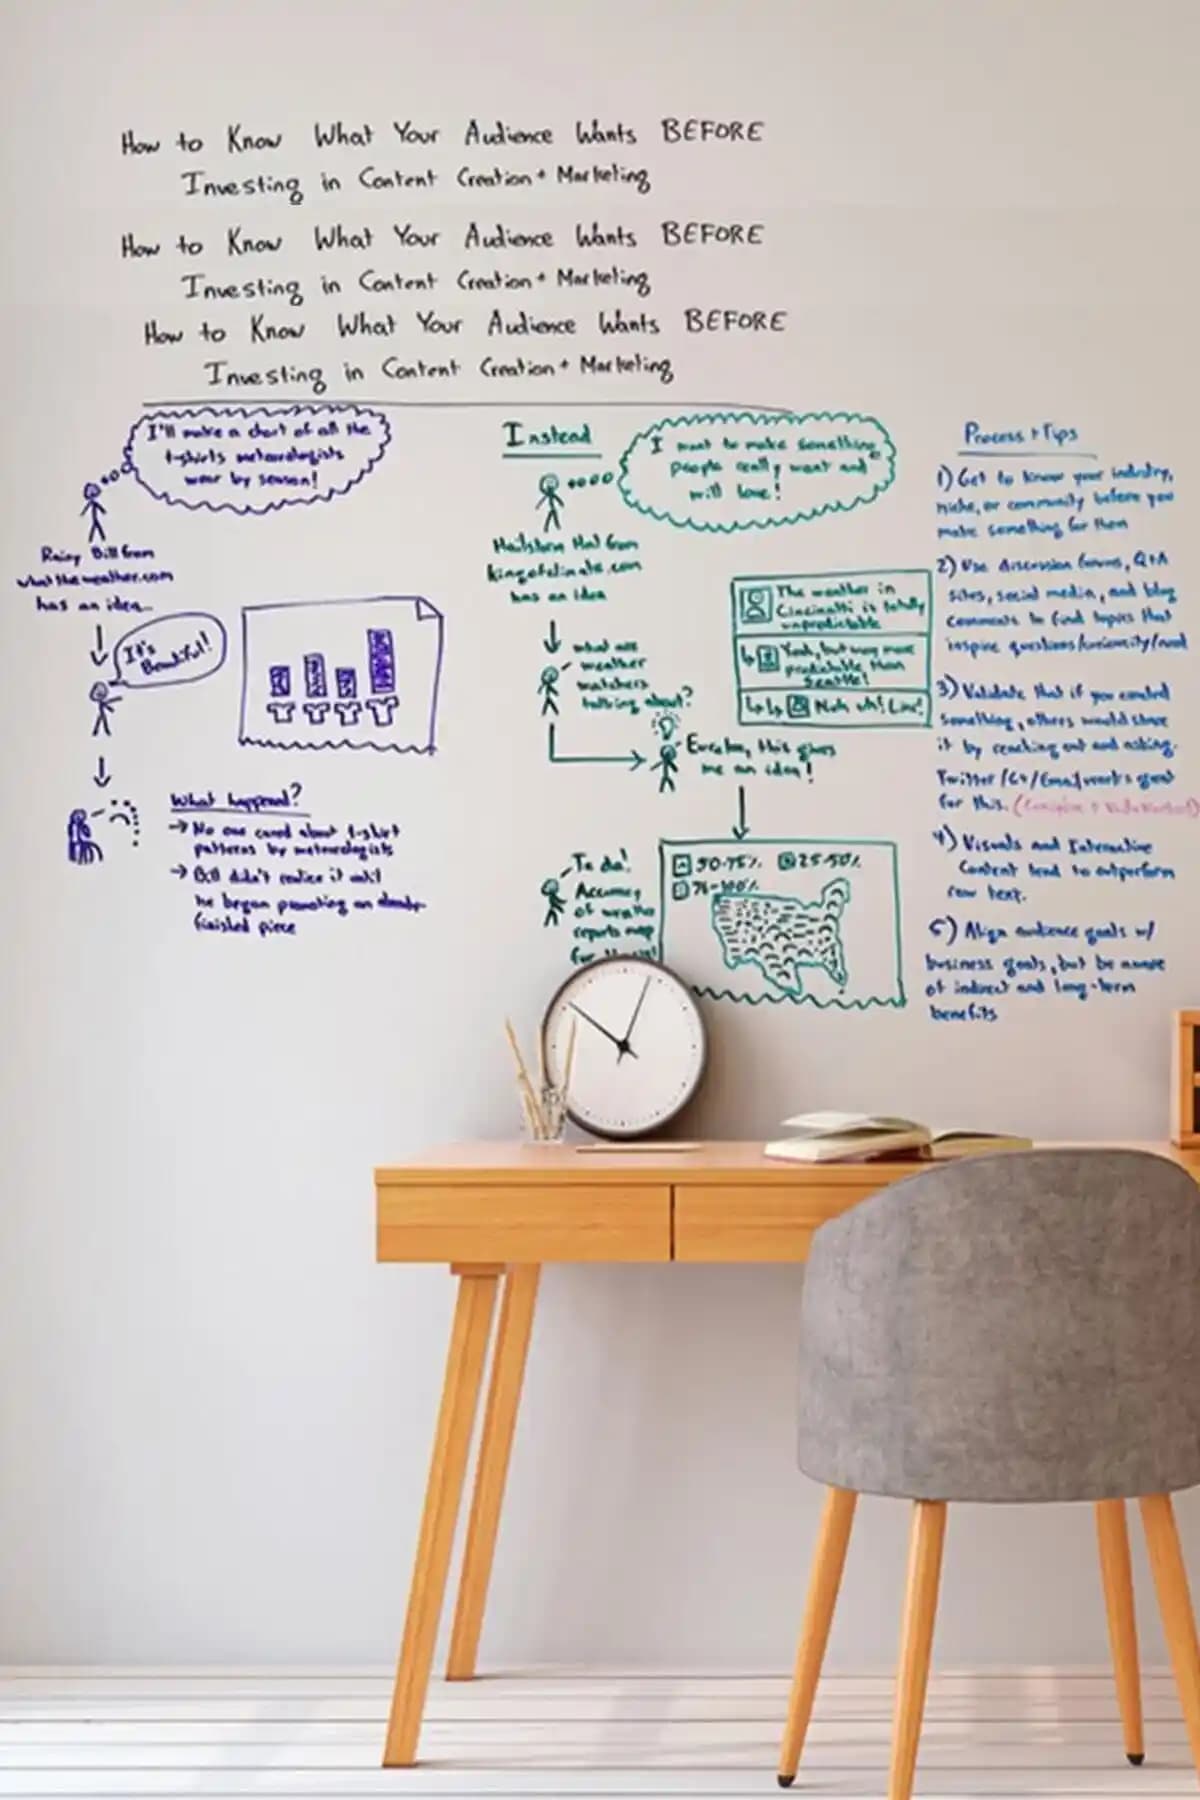 How to Know What Your Audience Wants BEFORE
Investing in Content Creation + Marketing
How to Know What Your Audience Wants BEFORE
Investing in Content Creation + Marketing
How to Know What Your Audience Wants BEFORE
Investing in Content Creation + Marketing
I'll make a chart of all the
t-shirts meteorologists
wear by season!
Rainy Bill from
whattheweather.com
has an idea...
It's
Beautiful!
What happened?
→ No one cared about t-shirt
patterns by meteorologists
→ Bill didn't realize it until
he began promoting an already-
finished piece
Instead
I want to make something
people really want and
will love!
Hailstorm Hal from
kingofclimate.com
has an idea
what are
weather
watchers
talking about?
The weather in
Cincinatti is totally
unpredictable
Yeah, but way more
predictable than
Seattle!
Nuh uh! Link!
Eureka, this gives
me an idea!
Ta da!
Accuracy
of weather
reports map
for the
50-75%
25-50%
76-100%
Process + Tips
1) Get to know your industry,
niche, or community before you
make something for them
2) Use discussion forums, Q+A
sites, social media, and blog
comments to find topics that
inspire questions/curiosity/need
3) Validate that if you created
something, others would share
it by reaching out and asking.
Twitter/G+/Email work great
for this.
4) Visuals and Interactive
Content tend to outperform
raw text.
5) Align audience goals w/
business goals, but be aware
of indirect and long-term
benefits